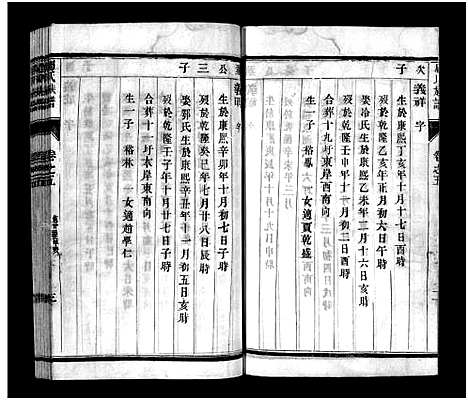 次 義祥 字
子
生於康熙丁亥年十月十七日亥時
歿於乾隆乙亥年正月初六日午時
娶冷氏生於康熙乙未年三月十六日亥時
歿於乾隆壬申年十一月初三日酉時
合葬十九圩東岸酉南向
生一子 裕 一女適夏乾盛
公 義 字
三
子
生於康熙辛卯年十月初七日子時
歿於乾隆癸巳年七月廿八日辰時
娶郭氏生於康熙辛丑年十一月初五日亥時
歿於乾隆壬子年十月十七日子時
合葬十一圩本岸東南向
生一子 裕林 一女適趙學仁
卷之五